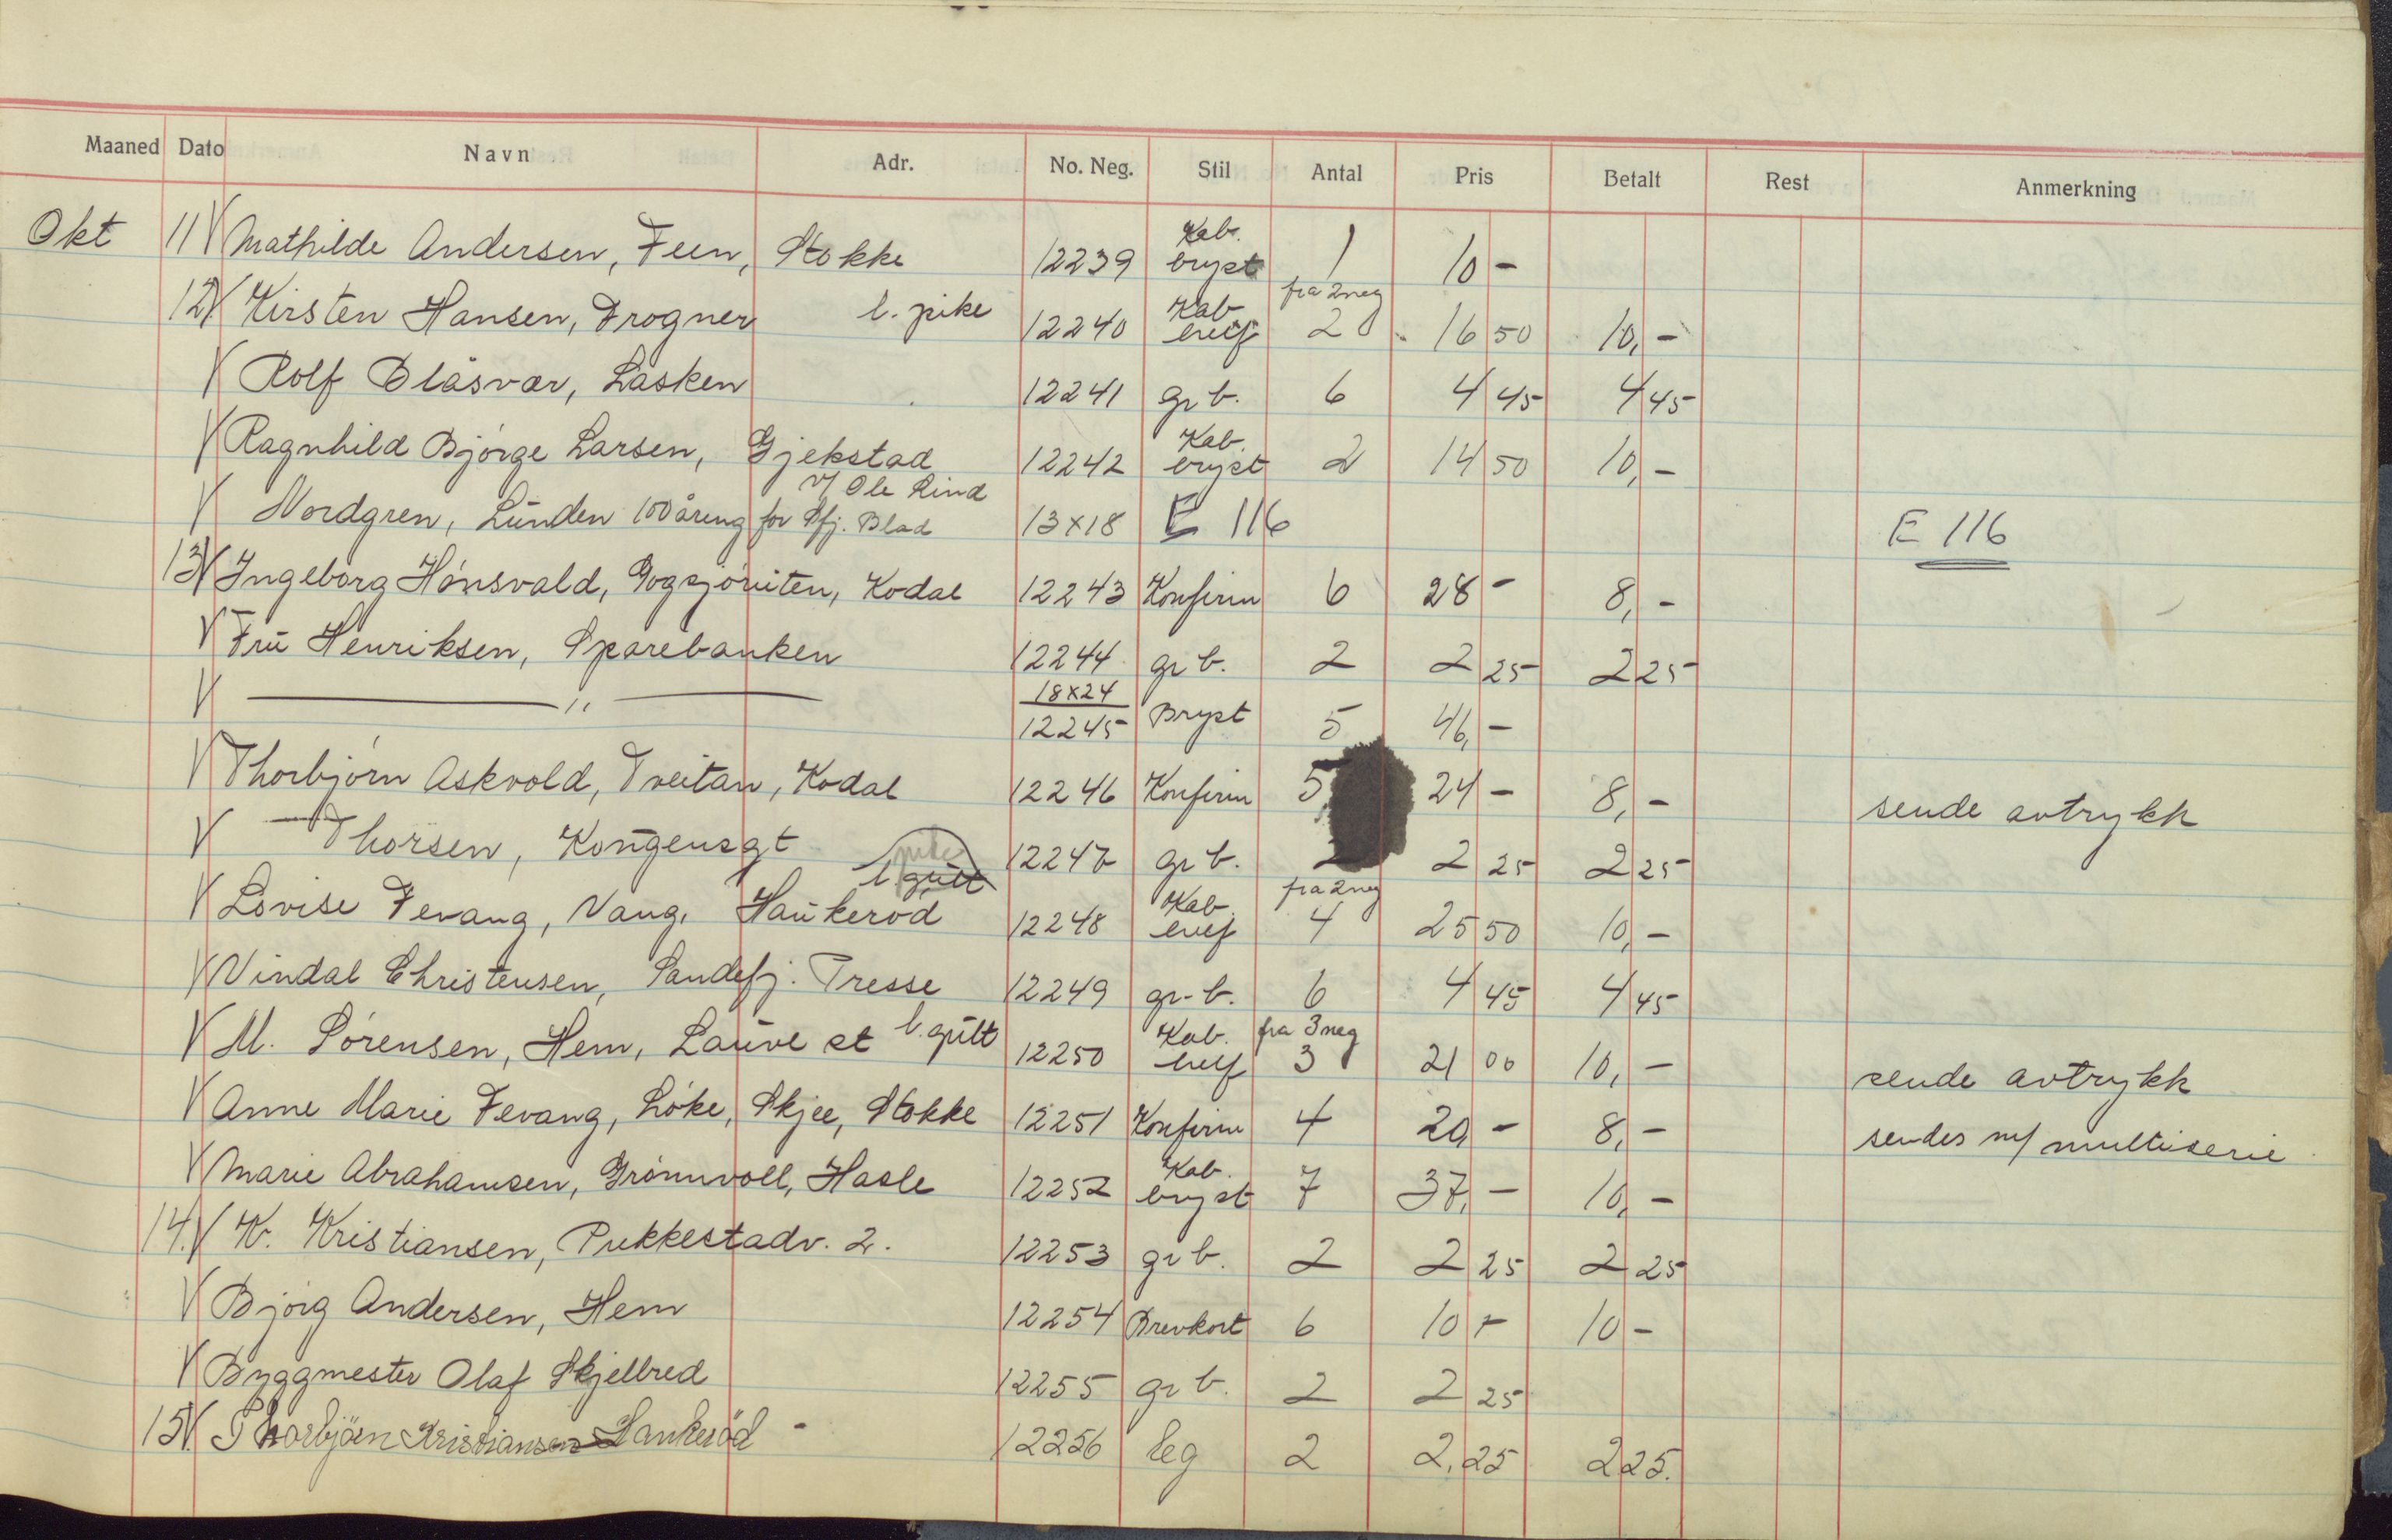 Maaned Dato Navn Adr. No. Neg. Stil Antal Pris Betalt Rest Anmerkning
Okt 11 V Mathilde Andersen, Feen, Stokke 12239 Kab. bryst 1 10 -
12 V Kirsten Hansen, Frogner l. pike 12240 Kab fra 2 neg 2 16 50 10, -
V Rolf Blåsvær, Lasken 12241 gr b. 6 4 45 4 45
V Ragnhild Bjørge Larsen, Gjekstad 12242 Kab. bryst 2 14 50 10, -
v/ Ole Lind
V Nordgren, Lunden 100 åring for Sfj. Blad 13x18 E 116 E 116
13 V Ingeborg Hønsvald, Gogsjø, Kodal 12243 Konfirm 6 28 - 8, -
V Fru Henriksen, Sparebanken 12244 gr b. 2 2 25 2 25
V — " — 18x24 12245 Bryst 5 46, -
V Thorbjørn Askvold, Tveitan, Kodal 12246 Konfirm 5 24 - 8, - sende avtrykk
V — Thorsen, Kongensgt 12247 gr b. 2 2 25 2 25
l. pike gutt
V Lovise Fevang, Vang, Haukerød 12248 Kab. fra 2 neg 4 25 50 10, -
V Vindal Christensen, Sandefj. Presse 12249 gr. b. 6 4 45 4 45
V M. Sørensen, Hem, Lauve st l. gutt 12250 Kab. fra 3 neg 3 21 00 10, - sende avtrykk
V Anne Marie Fevang, Løke, Skjee, Stokke 12251 Konfirm 4 20, - 8, - sendes m/ multiserie
V Marie Abrahamsen, Grønnvoll, Hasle 12252 Kab. bryst 7 37, - 10, -
14. V K. Kristiansen, Pukkestadv. 2. 12253 gr b. 2 2 25 2 25
V Bjørg Andersen, Hem 12254 Brevkort 6 10 - 10 -
V Byggmester Olaf Skjellbred 12255 gr b. 2 2 25
15 V. Thorbjörn Kristiansen Haukeröd - 12256 leg 2 2,25 2 25.